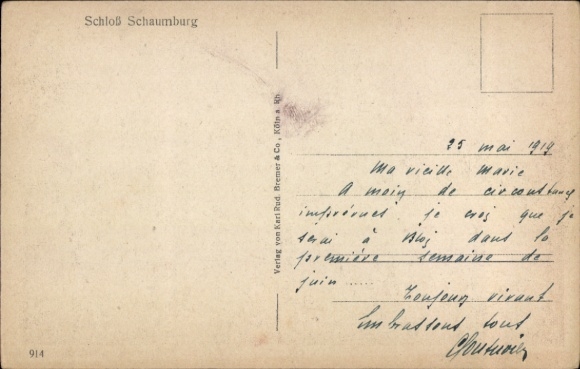 Schloß Schaumburg
Verlag von Karl Rud. Bremer & Co., Köln a. Rh.
25 mai 1919
Ma vieille Marie
A moins de circonstances
imprévues je crois que je
serai à Blois dans la
première semaine de
juin ......
Toujours vivant
Embrassons tous
914